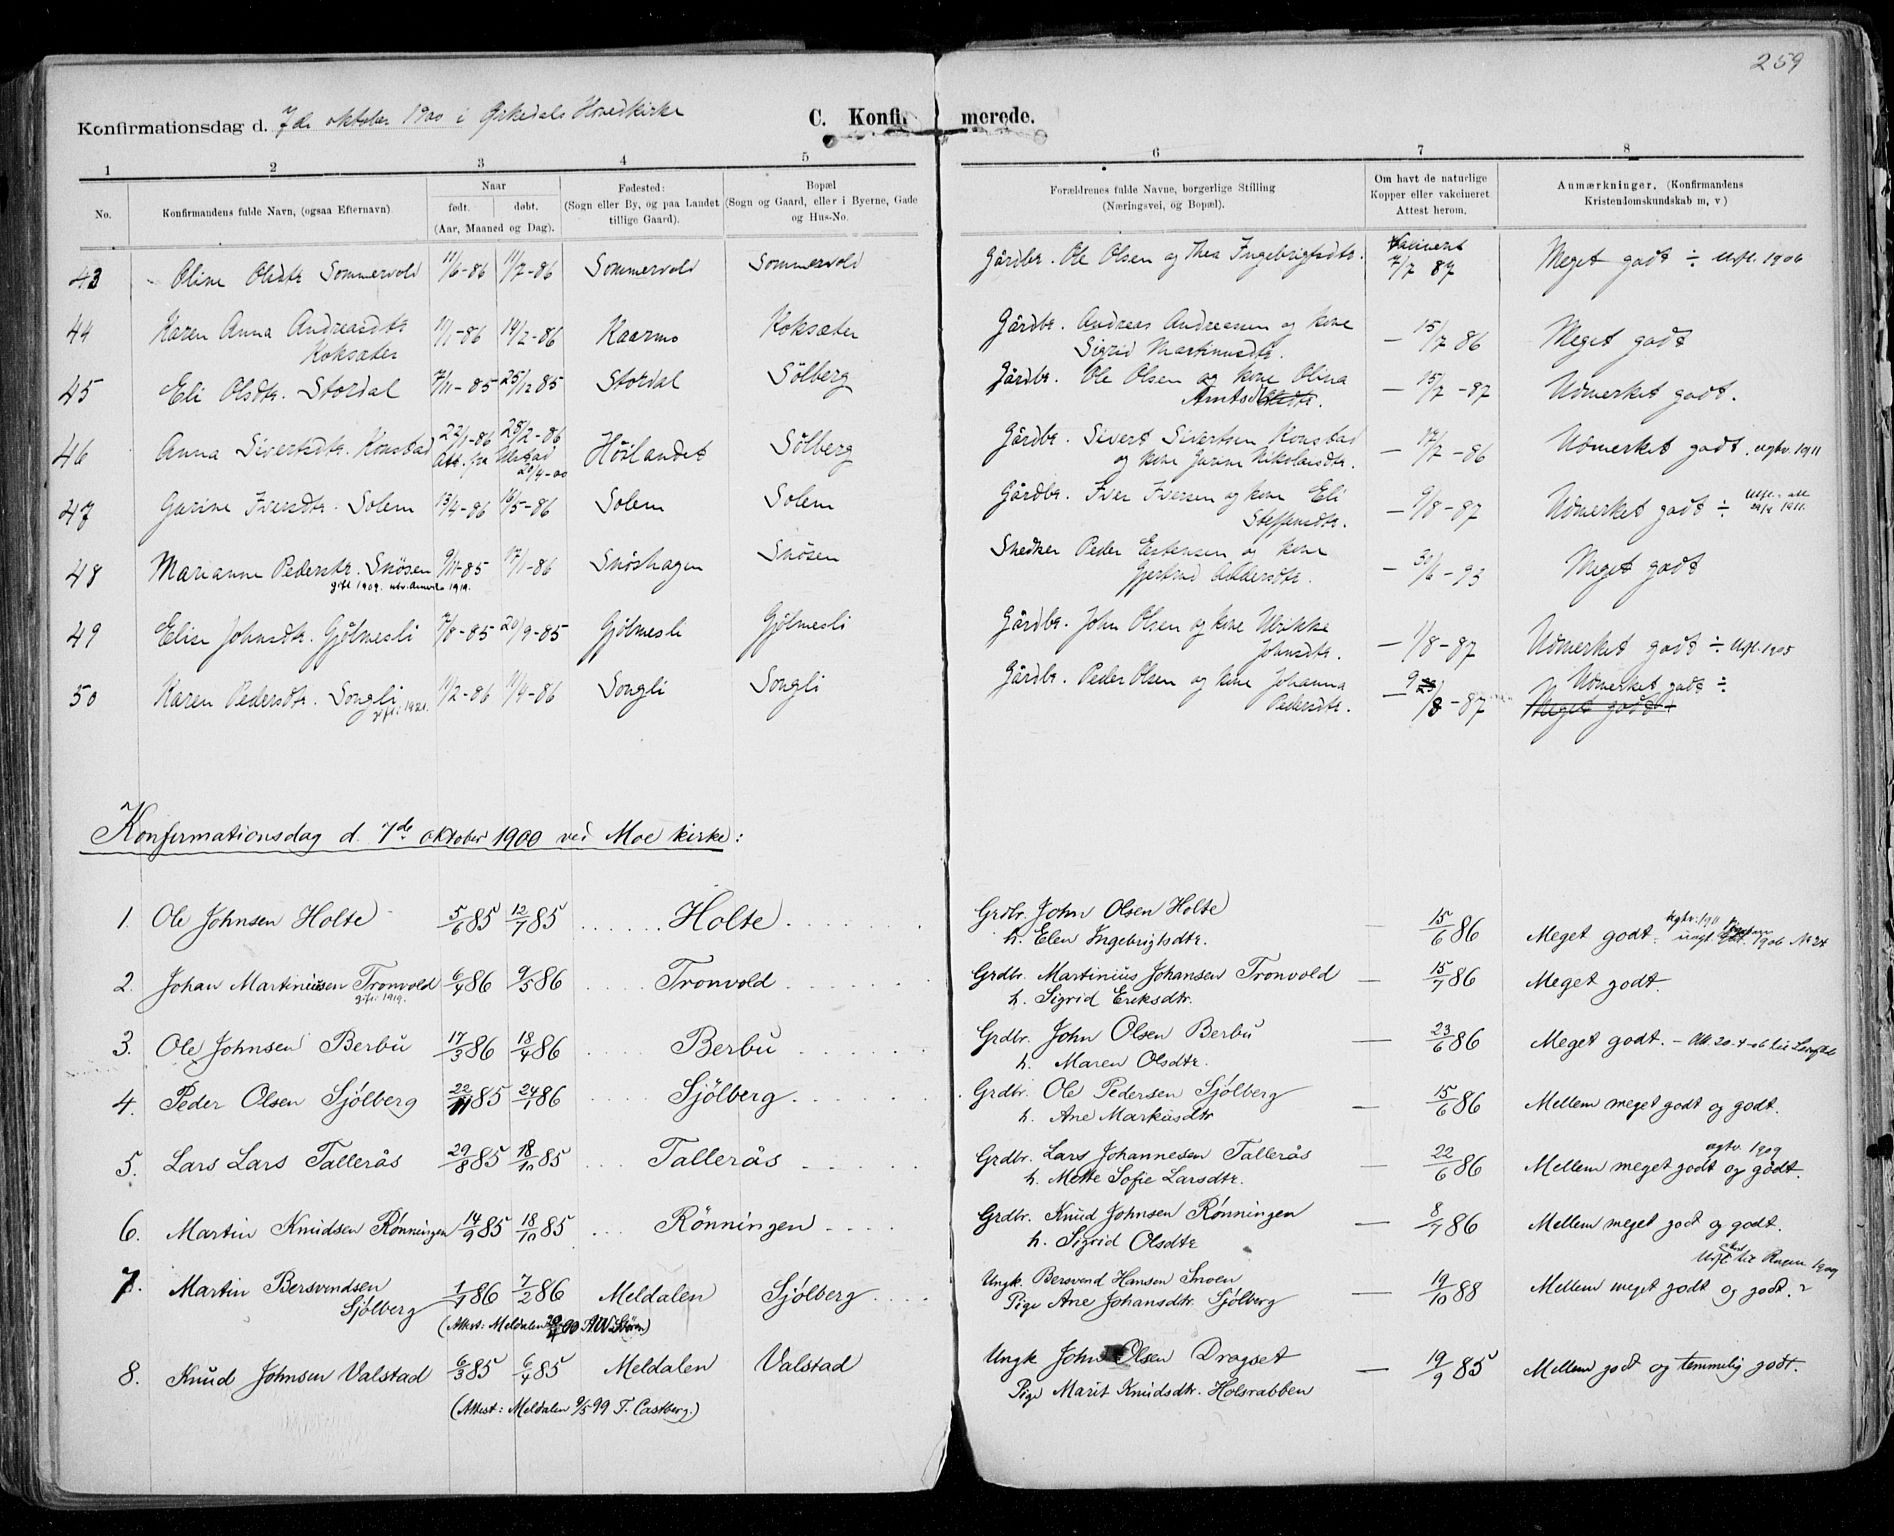 259
Konfirmationsdag d. 7de oktober 1900 i Ørkedals Hovedkirke
C. Konfirmerede.
1 2 3 4 5 6 7 8
No. Konfirmandens fulde Navn, (ogsaa Efternavn) Naar født. døbt. (Aar, Maaned og Dag). Fødested: (Sogn eller By, og paa Landet tillige Gaard). Bopæl (Sogn og Gaard, eller i Byerne, Gade og Hus-No. Forældrenes fulde Navne, borgerlige Stilling (Næringsvei, og Bopæl). Om havt de naturlige Kopper eller vakcineret Attest herom. Anmærkninger, (Konfirmandens Kristendomskundskab m, v)
43 Oline Olsdtr Sommervold 11/6-86 11/7-86 Sommervold Sommervold Gårdbr. Ole Olsen og Thea Ingebrigtsdtr. Vakcineret 7/7 87 Meget godt ÷ Utfl. 1906
44 Karen Anna Andreasdtr 11/1-86 14/2-86 Kaarmo Koksæter Gårdbr. Andreas Andreassen og kone — 15/7 86 Meget godt
Koksæter Sigrid Markusdtr.
45 Eli Olsdtr. Stordal 7/11-85 25/12 85 Stordal Sølberg Gårdbr. Ole Olsen og kone Olina — 15/7-87 Udmerket godt.
Arntsdtr.
46 Anna Sivertsdtr. Konstad 22/1-86 28/2-86 Höilandet Sølberg Gårdbr. Sivert Sivertsen Konstad — 17/7-86 Udmerket godt. ugtv. 1911
Att. fra 20/4-00 og kone Gurine Nikolaisdtr.
47 Gurine Iversdtr. Solem 13/4-86 16/5-86 Solem Solem Gårdbr. Iver Iversen og kone Eli — 9/8-87 Udmerket godt ÷ Utfl. att 1911.
Steffensdtr.
48 Marianne Pedersdtr. Snösen 9/11-85 17/1-86 Snöshagen Snösen Snedker Peder Estensen og kone — 30/6-93 Meget godt
gift 1909. utv. Amerika 1919. Gjertrud
49 Elise Johnsdtr. Gjølmesli 7/8-85 20/9-85 Gjølmesli Gjølmesli Gårdbr. John Olsen og kone Ulrikke — 1/8-87 Udmerket godt ÷ Utfl. 1905
Johnsdtr.
50 Karen Pedersdtr. Songli 11/2-86 11/4-86 Songli Songli Gårdbr. Peder Olsen og kone Johanna — 9/8-87 Udmerket godt ÷
gift: 1921. Pedersdtr. Meget godt
Konfirmationsdag d. 7de oktober 1900 ved Moe kirke:
1. Ole Johnsen Holte 5/6 85 12/7 85 Holte Grdbr. John Olsen Holte — 15/6 86 Meget godt. ugtv. 1911 1906 No 24
h. Elen Ingebrigtsdtr.
2. Johan Martiniussen Tronvold 6/4 86 9/5 86 Tronvold Grdbr. Martinius Johansen Tronvold — 15/7 86 Meget godt.
gift: 1919. h. Sigrid Eriksdtr.
3. Ole Johnsen Berbu 17/3 86 18/4 86 Berbu Grdbr. John Olsen Berbu — 23/6 86 Meget godt. – Utt. 20-4-06 til
h. Maren Olsdtr.
4. Peder Olsen Sjølberg 22/11 85 24/1 86 Sjølberg Grdbr. Ole Pedersen Sjølberg — 15/6 86 Mellem meget godt og godt.
h. Ane Markusdtr
5. Lars Lars Tallerås 29/8 85 18/10 85 Tallerås Grdbr. Lars Johannesen Tallerås — 22/6 86 Mellem meget godt og godt. ugtv. 1909
h. Mette Sofie Larsdtr.
6. Martin Knudsen Rønningen 14/9 85 18/10 85 Rønningen Grdbr. Knud Johnsen Rønningen — 8/7 86 Mellem meget godt og godt.
h. Sigrid Olsdtr
7. Martin Bersvendsen 1/1 86 7/2 86 Meldalen Sjølberg Ungk. Bersvend Hansen Snoen — 19/10 88 Mellem meget godt og godt. Utfl. til 1909
Sjølberg Pige Ane Johansdtr. Sjølberg
(Attest: Meldalen 00
8. Knud Johnsen Valstad 6/3 85 6/4 85 Meldalen Valstad Ungk John Olsen Dragset — 19/9 85 Mellem godt og temmelig godt.
Pige Marit Knudsdtr. Holsrabben
(Attest: Meldalen 9/5 99 T. Castberg.)